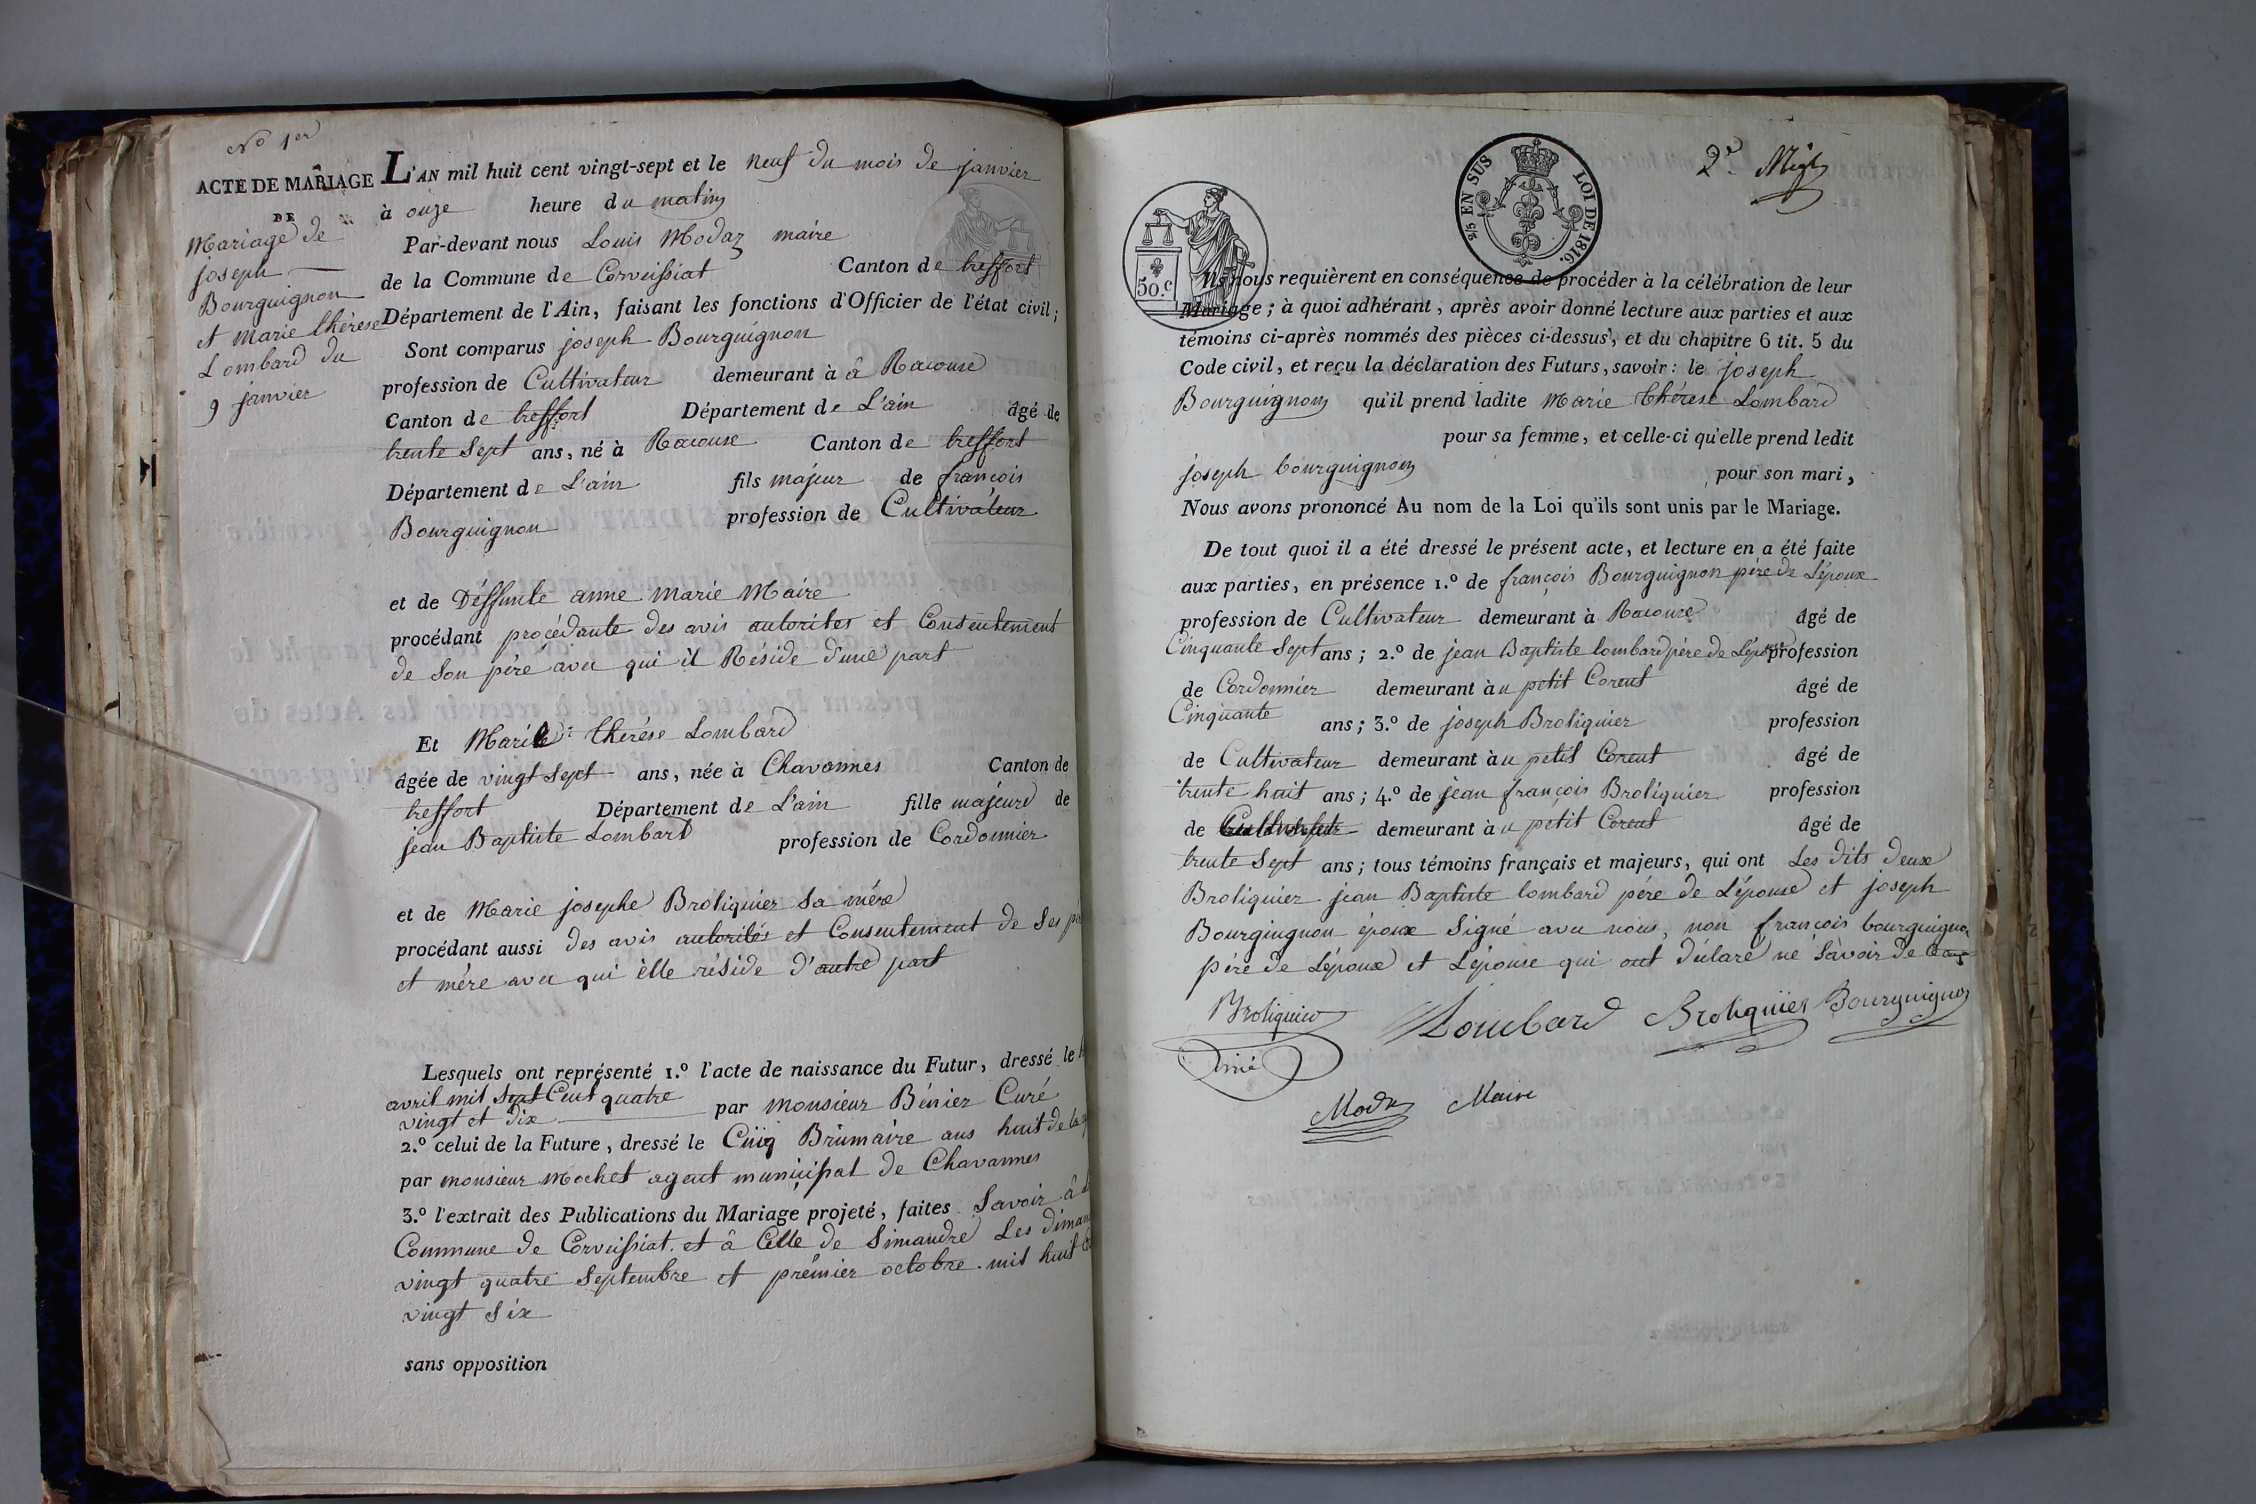 No 1er
ACTE DE MARIAGE
DE
Mariage de
joseph
Bourguignon
et marie thérèse
Lombard du
9 janvier
L'AN mil huit cent vingt-sept et le neuf du mois de janvier
à onze heure du matin
Par-devant nous Louis Modaz maire
de la Commune de Corveissiat Canton de treffort
Département de l'Ain, faisant les fonctions d'Officier de l'état civil;
Sont comparus joseph Bourguignon
profession de Cultivateur demeurant à â Racouse
Canton de treffort Département de L'ain âgé de
trente Sept ans, né à Racouse Canton de treffort
Département de L'ain fils majeur de françois
Bourguignon profession de Cultivateur
et de Déffunte anne marie Maire
procédant procédante des avis autorités et Consentement
de Son péré avec qui il Réside d'une part
Et Marie thérése Lombard
âgée de vingt sept ans, née à Chavannes Canton de
treffort Département de L'ain fille majeure de
jean Baptiste Lombard profession de Cordonnier
et de Marie josephe Broliquier Sa mére
procédant aussi des avis autorités et Consentement de Ses
et mére avec qui èlle réside d'autre part
Lesquels ont représenté 1.º l'acte de naissance du Futur, dressé le
avril mil Sept Cent quatre
vingt et dix par monsieur Bénier Curé
2.º celui de la Future, dressé le Cinq Brumaire ans huit de la
par monsieur mochet agent municipal de Chavannes
3.º l'extrait des Publications du Mariage projeté, faites Savoir â
Commune de Corveissiat. et â Celle de Simandre Les
vingt quatre Septembre et prémier octobre. mil huit
vingt Six
sans opposition
2e
50.c
2/5 EN SUS LOI DE 1816.
Ils nous requièrent en conséquence de procéder à la célébration de leur
Mariage; à quoi adhérant, après avoir donné lecture aux parties et aux
témoins ci-après nommés des pièces ci-dessus, et du chapitre 6 tit. 5 du
Code civil, et reçu la déclaration des Futurs, savoir: le joseph
Bourguignon qu'il prend ladite Marie thérese Lombard
pour sa femme, et celle-ci qu'elle prend ledit
joseph bourguignon pour son mari,
Nous avons prononcé Au nom de la Loi qu'ils sont unis par le Mariage.
De tout quoi il a été dressé le présent acte, et lecture en a été faite
aux parties, en présence 1.º de françois Bourguignon père de L'époux
profession de Cultivateur demeurant à Racouse âgé de
Cinquante Sept ans; 2.º de jean Baptiste lombard père de L'épouse profession
de Cordonnier demeurant à u petit Corent âgé de
Cinquante ans; 3.º de joseph Broliquier profession
de Cultivateur demeurant à u petit Corent âgé de
trente huit ans; 4.º de jean françois Broliquier profession
de Cultivateur demeurant à u petit Corent âgé de
trente Sept ans; tous témoins français et majeurs, qui ont Les dits deux
Broliquier jean Baptiste lombard pére de L'épouse et joseph
Bourguignon époux Signé avec nous, non françois bourguignon
pére de L'époux et L'épouse qui ont déclaré né Sàvoir de Ce
Broliquier
Lombard Broliquier Bourguignon
Modaz Maire